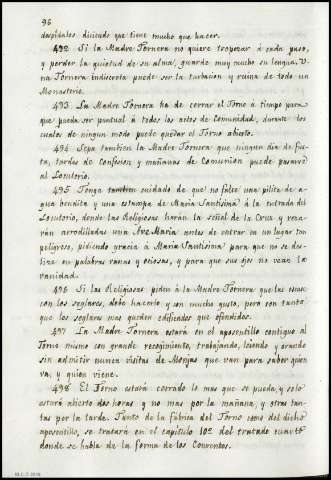 96
despidalos diciendo que tiene mucho que hacer.
492 Si la Madre Tornera no quiere tropezar á cada paso,
y perder la quietud de su alma, guarde muy mucho su lengua. U-
na Tornera indiscreta puede ser la turbacion y ruina de todo un
Monasterio.
493. La Madre Tornera ha de cerrar el Torno á tiempo para
que pueda ser puntual á todos los actos de Comunidad, durante los
cuales de ningun modo puede quedar el Torno abierto.
494. Sepa tambien la Madre Tornera que ningun dia de fies-
ta, tardes de Confesion y mañanas de Comunion puede pasarse
al Locutorio.
495 Tenga tambien cuidado de que no falte una pilita de a-
gua bendita y una estampa de Maria Santisima á la entrada del
Locutorio, donde las Religiosas harán la señal de la Cruz y reza-
rán arrodilladas una Ave Maria antes de entrar en un lugar tan
peligroso, pidiendo gracia á Maria Santisima para que no se des-
lize en palabras vanas y ociosas, y para que sus ojos no vean la
vanidad.
496 Si las Religiosas piden á la Madre Tornera que las escuse
con los seglares, debe hacerlo y con mucho gusto, pero con tanto
que los seglares mas queden edificados que ofendidos.
497 La Madre Tornera estará en el aposentillo contiguo al
Torno mismo con grande recogimiento, trabajando, leyendo y orando
sin admitir nunca visitas de Monjas que van para saber quien
va, y quien viene.
498 El Torno estará cerrado lo mas que se pueda, y solo
estará abierto dos horas y no mas por la mañana, y otras tan-
tas por la tarde. Tanto de la fabrica del Torno como del dicho
aposentillo, se tratará en el capitulo 10º del tratado cuarto
donde se habla de la forma de los Conventos.